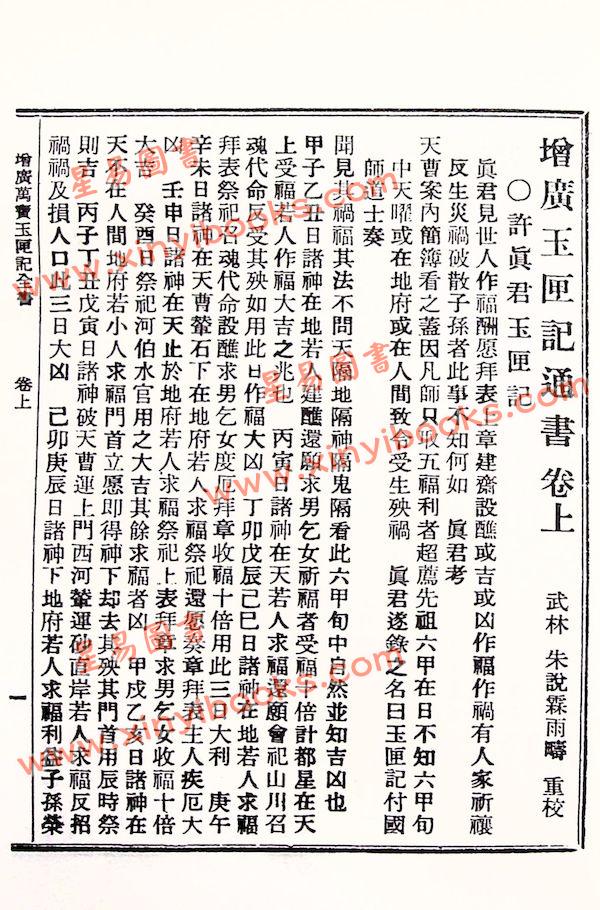 增廣玉匣記通書卷上
武林 朱說霖雨疇 重校
○許眞君玉匣記
眞君見世人作福酬愿拜表上章建齋設醮或吉或凶作福作禍有人家祈禳
反生災禍破散子孫者此事不知何如 眞君考
天曹案內簡簿看之蓋因凡師只收五福利者超薦先祖六甲在日不知六甲旬
中天曜或在地府或在人間致令受生殃禍 眞君遂錄之名曰玉匣記付國
師道士奏
聞見其禍福其法不問天隔地隔神隔鬼隔看此六甲旬中自然並知吉凶也
甲子乙丑日諸神在地若人建醮還願求男乞女祈福者受福十倍計都星在天
上受福若人作福大吉之兆也 丙寅日諸神在天若人求福還願會祀山川召
魂代命反受其殃如用此日作福大凶 丁卯戊辰己巳日諸神在地若人求福
拜表祭祀名魂代命設醮求男乞女度厄拜章收福十倍用此三日大利 庚午
辛未日諸神在天曹鞶石下在地府若人求福祭祀還愿奏章拜表生人疾厄大
凶 壬申日諸神在天止於地府若人求福祭祀上表拜章求男乞女收福十倍
大吉 癸酉日祭祀河伯水官用之大吉其餘求福者凶 甲戌乙亥日諸神在
天不在人間地府若小人求福門首立愿即得神下却去其殃其門首用辰時祭
則吉 丙子丁丑戊寅日諸神破天曹運上門西河鞶運砂直岸若人求福反招
禍禍及損人口此三日大凶 己卯庚辰日諸神下地府若人求福利益子孫榮
增廣萬寶玉匣記全書 卷上 一
星易圖書
www.xinyibooks.com
星易圖書
www.xinyibooks.com
星易圖書
www.xinyibooks.com
星易圖書
www.xinyibooks.com